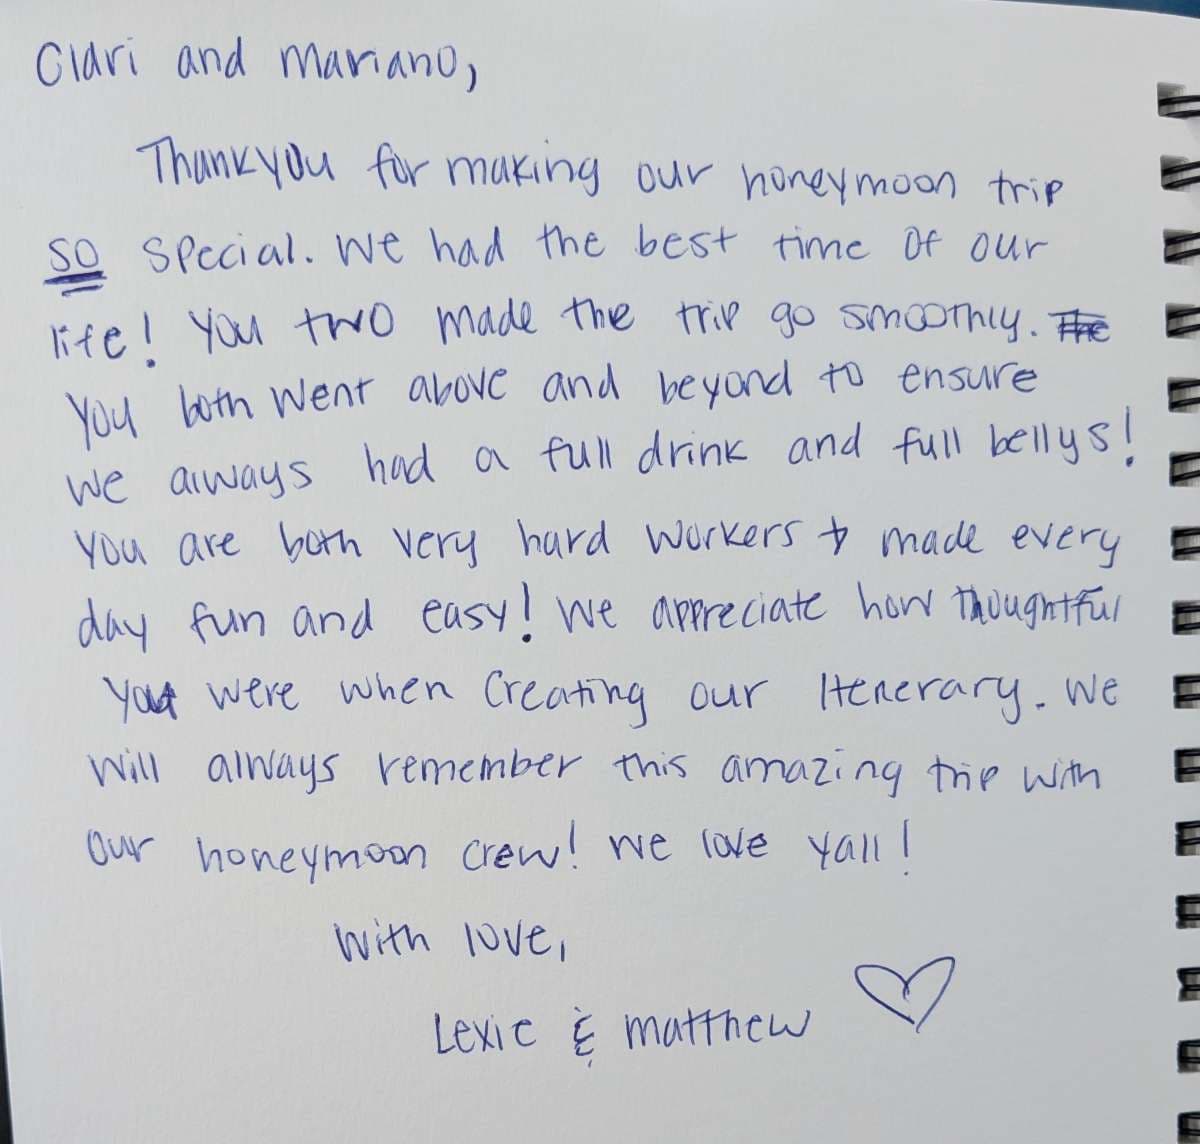 Clari and Mariano,
Thankyou for making our honeymoon trip
so special. We had the best time of our
life! You two made the trip go smoothly. The
You both went above and beyond to ensure
we always had a full drink and full bellys!
You are both very hard workers & made every
day fun and easy! We appreciate how thoughtful
you were when creating our Itenerary. We
will always remember this amazing trip with
our honeymoon crew! We love yall!
With love,
Lexie & Matthew